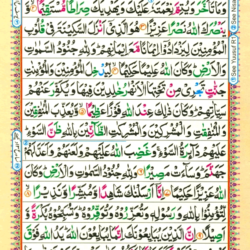 وَمَا تَاَخَّرَ وَيُتِمَّ نِعْمَتَهٗ عَلَيْكَ وَيَهْدِيَكَ صِرَاطًا مُّسْتَقِيْمًا
وَّيَنْصُرَكَ اللّٰهُ نَصْرًا عَزِيْزًا هُوَ الَّذِيْۤ اَنْزَلَ السَّكِيْنَةَ فِيْ قُلُوْبِ
الْمُؤْمِنِيْنَ لِيَزْدَادُوْۤا اِيْمَانًا مَّعَ اِيْمَانِهِمْ وَلِلّٰهِ جُنُوْدُ السَّمٰوٰتِ
وَالْاَرْضِ وَكَانَ اللّٰهُ عَلِيْمًا حَكِيْمًا لِّيُدْخِلَ الْمُؤْمِنِيْنَ وَالْمُؤْمِنٰتِ
جَنّٰتٍ تَجْرِيْ مِنْ تَحْتِهَا الْاَنْهٰرُ خٰلِدِيْنَ فِيْهَا وَيُكَفِّرَ عَنْهُمْ
سَيِّاٰتِهِمْ وَكَانَ ذٰلِكَ عِنْدَ اللّٰهِ فَوْزًا عَظِيْمًا وَّيُعَذِّبَ الْمُنٰفِقِيْنَ
وَالْمُنٰفِقٰتِ وَالْمُشْرِكِيْنَ وَالْمُشْرِكٰتِ الظَّآنِّيْنَ بِاللّٰهِ ظَنَّ السَّوْءِ
عَلَيْهِمْ دَآئِرَةُ السَّوْءِ وَغَضِبَ اللّٰهُ عَلَيْهِمْ وَلَعَنَهُمْ وَاَعَدَّ لَهُمْ
جَهَنَّمَ وَسَآءَتْ مَصِيْرًا وَلِلّٰهِ جُنُوْدُ السَّمٰوٰتِ وَالْاَرْضِ وَكَانَ
اللّٰهُ عَزِيْزًا حَكِيْمًا اِنَّاۤ اَرْسَلْنٰكَ شَاهِدًا وَّمُبَشِّرًا وَّنَذِيْرًا
لِّتُؤْمِنُوْا بِاللّٰهِ وَرَسُوْلِهٖ وَتُعَزِّرُوْهُ وَتُوَقِّرُوْهُ وَتُسَبِّحُوْهُ بُكْرَةً
وَّاَصِيْلًا اِنَّ الَّذِيْنَ يُبَايِعُوْنَكَ اِنَّمَا يُبَايِعُوْنَ اللّٰهَ يَدُ اللّٰهِ